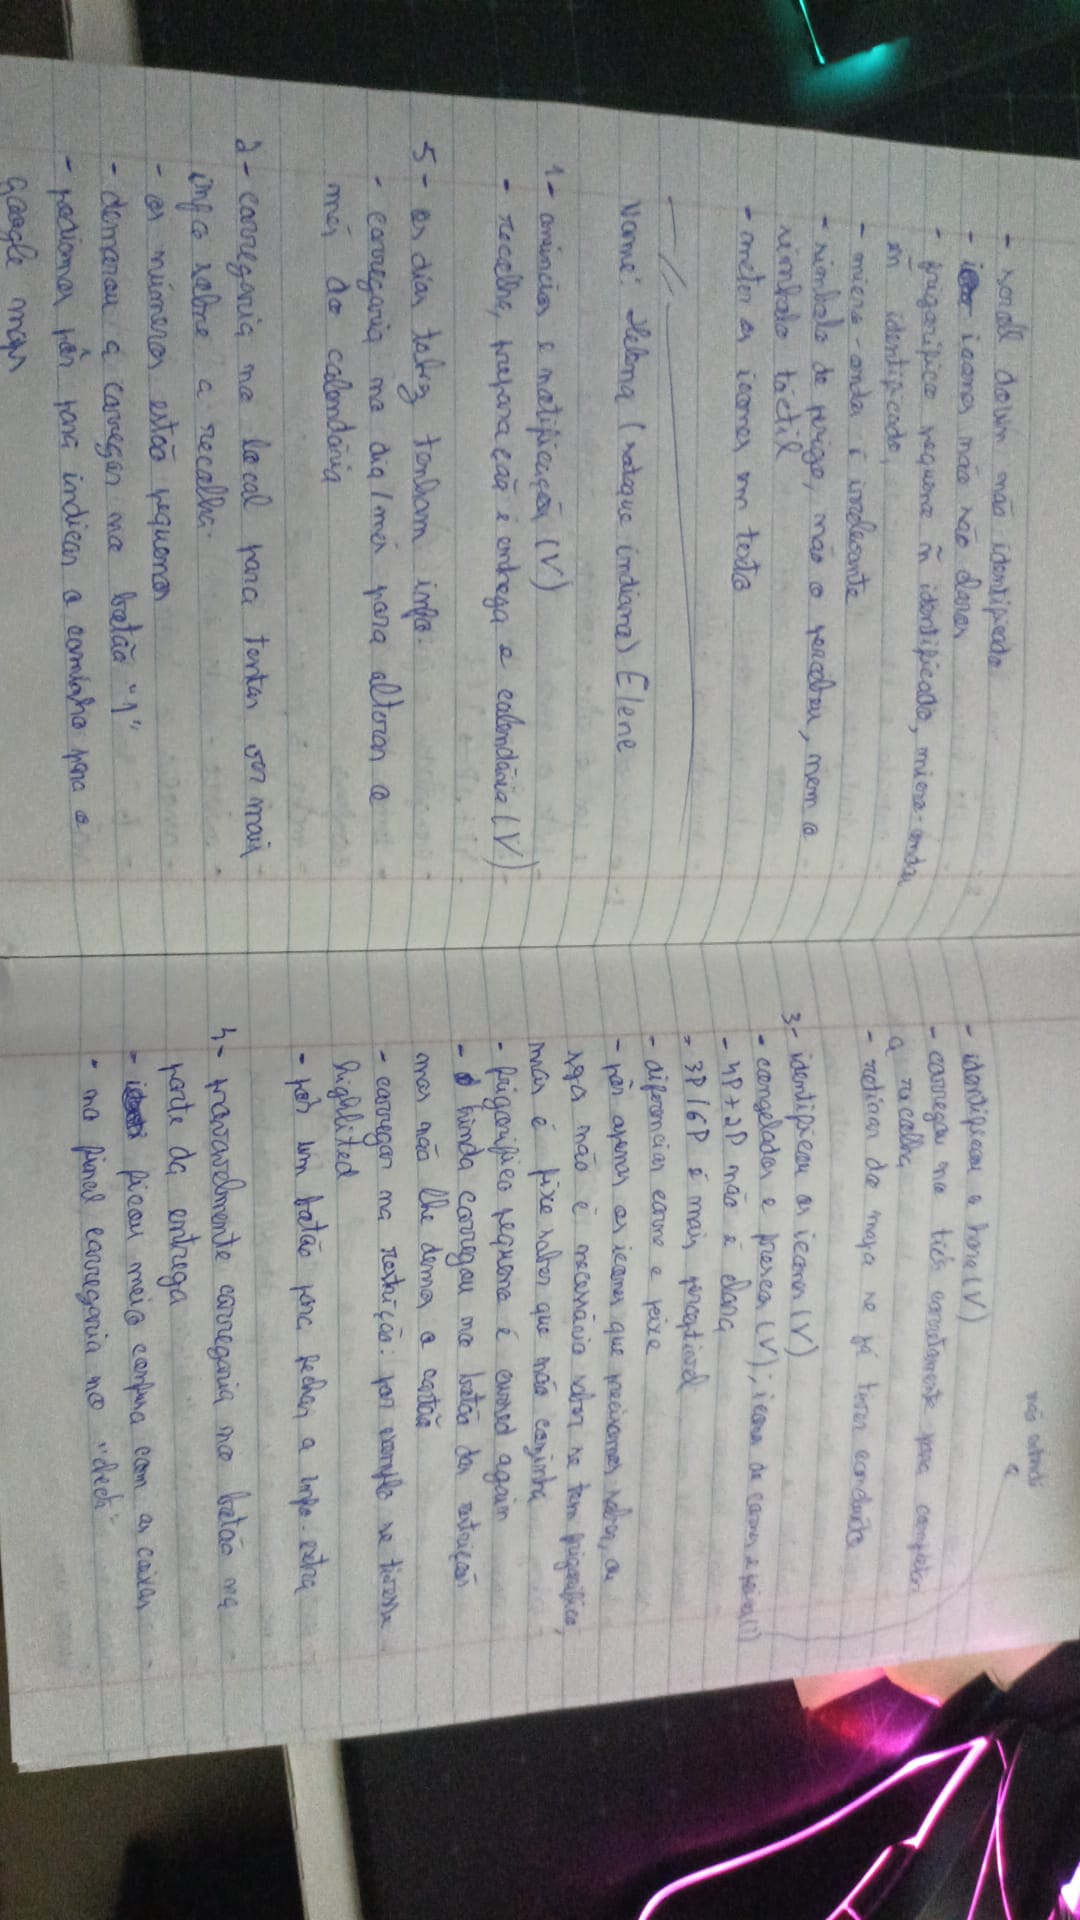 - scroll down não identificado
- icones não são claros
- frigorifico pequeno ñ identificado, micro-ondas
ñ identificado,
- micro-onda é irrelevante
- simbolo de perigo, não o percebeu, nem o
simbolo táctil
- meter os icones em texto
Nome: Helena (sotaque indiano) Elene
1- anúncios e notificações (V)
- recolha, preparação e entrega e calendário (V)
5- os dias talvez tenham info.
- carregaria no dia/mês para alterar o
mês do calendário
2- carregaria no local para tentar ver mais
info sobre a recolha.
- os números estão pequenos
- demorou a carregar no botão "1"
- podiamos pôr para indicar o caminho para o
google maps
- identificou a hora (V)
- carregou no três corretamente para completar
a recolha
- retirar do mapa se já tiver
3- identificou os icones (V)
- congelados e frescos (V); icone de carne e peixe (V)
- 4P+2P não é claro
- 3P/6P é mais perceptivel
- diferenciar carne e peixe
- pôr apenas os icones que precisamos saber, ou
seja não é necessário saber se tem frigorifico,
mas é fixe saber que não cozinha
- frigorifico pequeno é cursed again
- Ainda carregou no botão das restrições
mas não lhe demos o cartão
- carregar na restrição: por exemplo se tivesse
highlited
- pôr um botão para fechar a info. extra
4- provavelmente carregaria no botão na
parte da entrega
- ficou meio confusa com as caixas
- no final carregaria no "check"